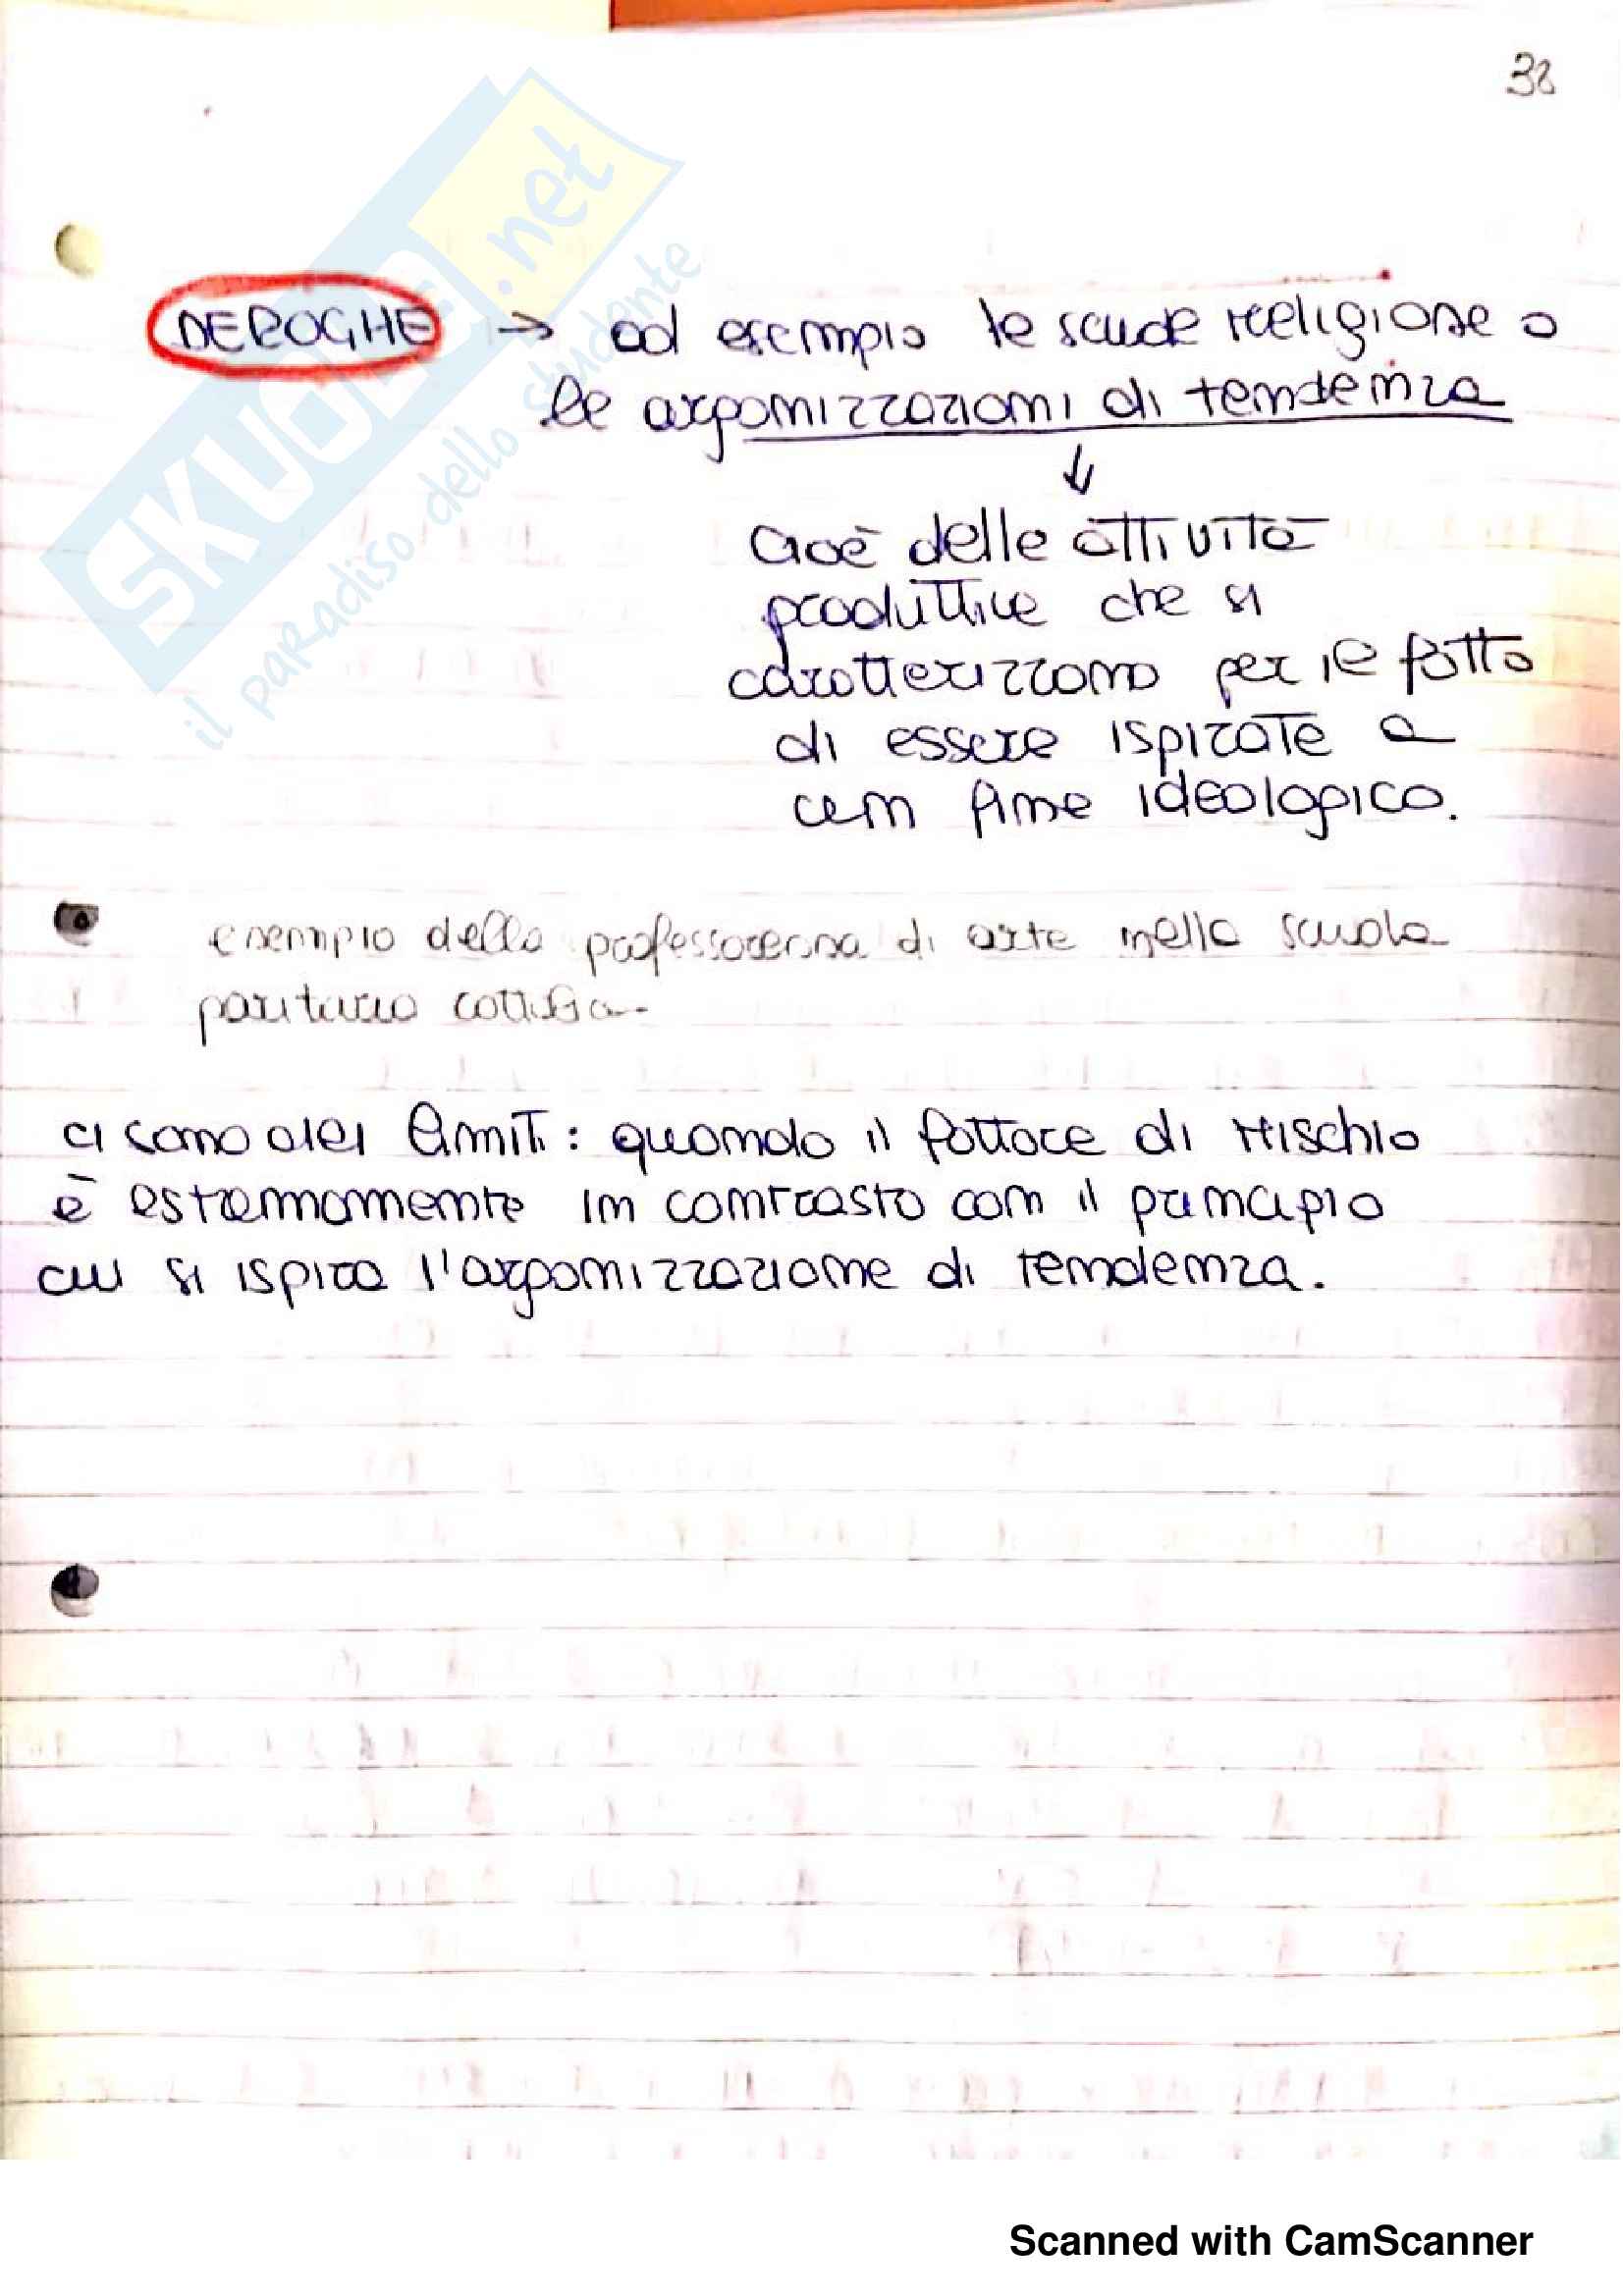 38
DEROGHE → ad esempio le scuole religiose o
le organizzazioni di tendenza
↓
cioè delle attività
produttive che si
caratterizzano per il fatto
di essere ispirate a
un fine ideologico.
esempio della professoressa di arte nella scuola
paritaria cattolica
ci sono dei limiti: quando il fattore di rischio
è estremamente in contrasto con il principio
cui si ispira l'organizzazione di tendenza.
SKUOLA.net
il paradiso dello studente
Scanned with CamScanner